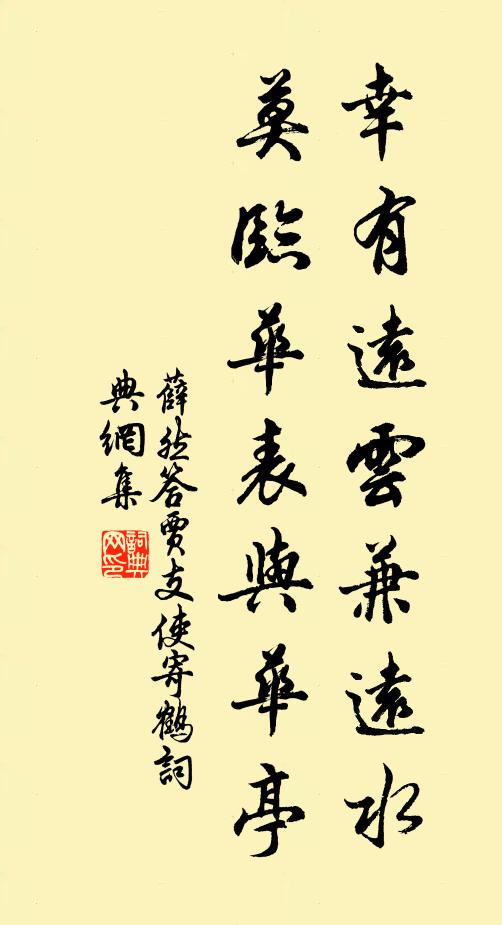 幸有遠雲兼遠水
莫臨華表與華亭
薛能答賈支使寄鶴詞
典網集
詞典网印